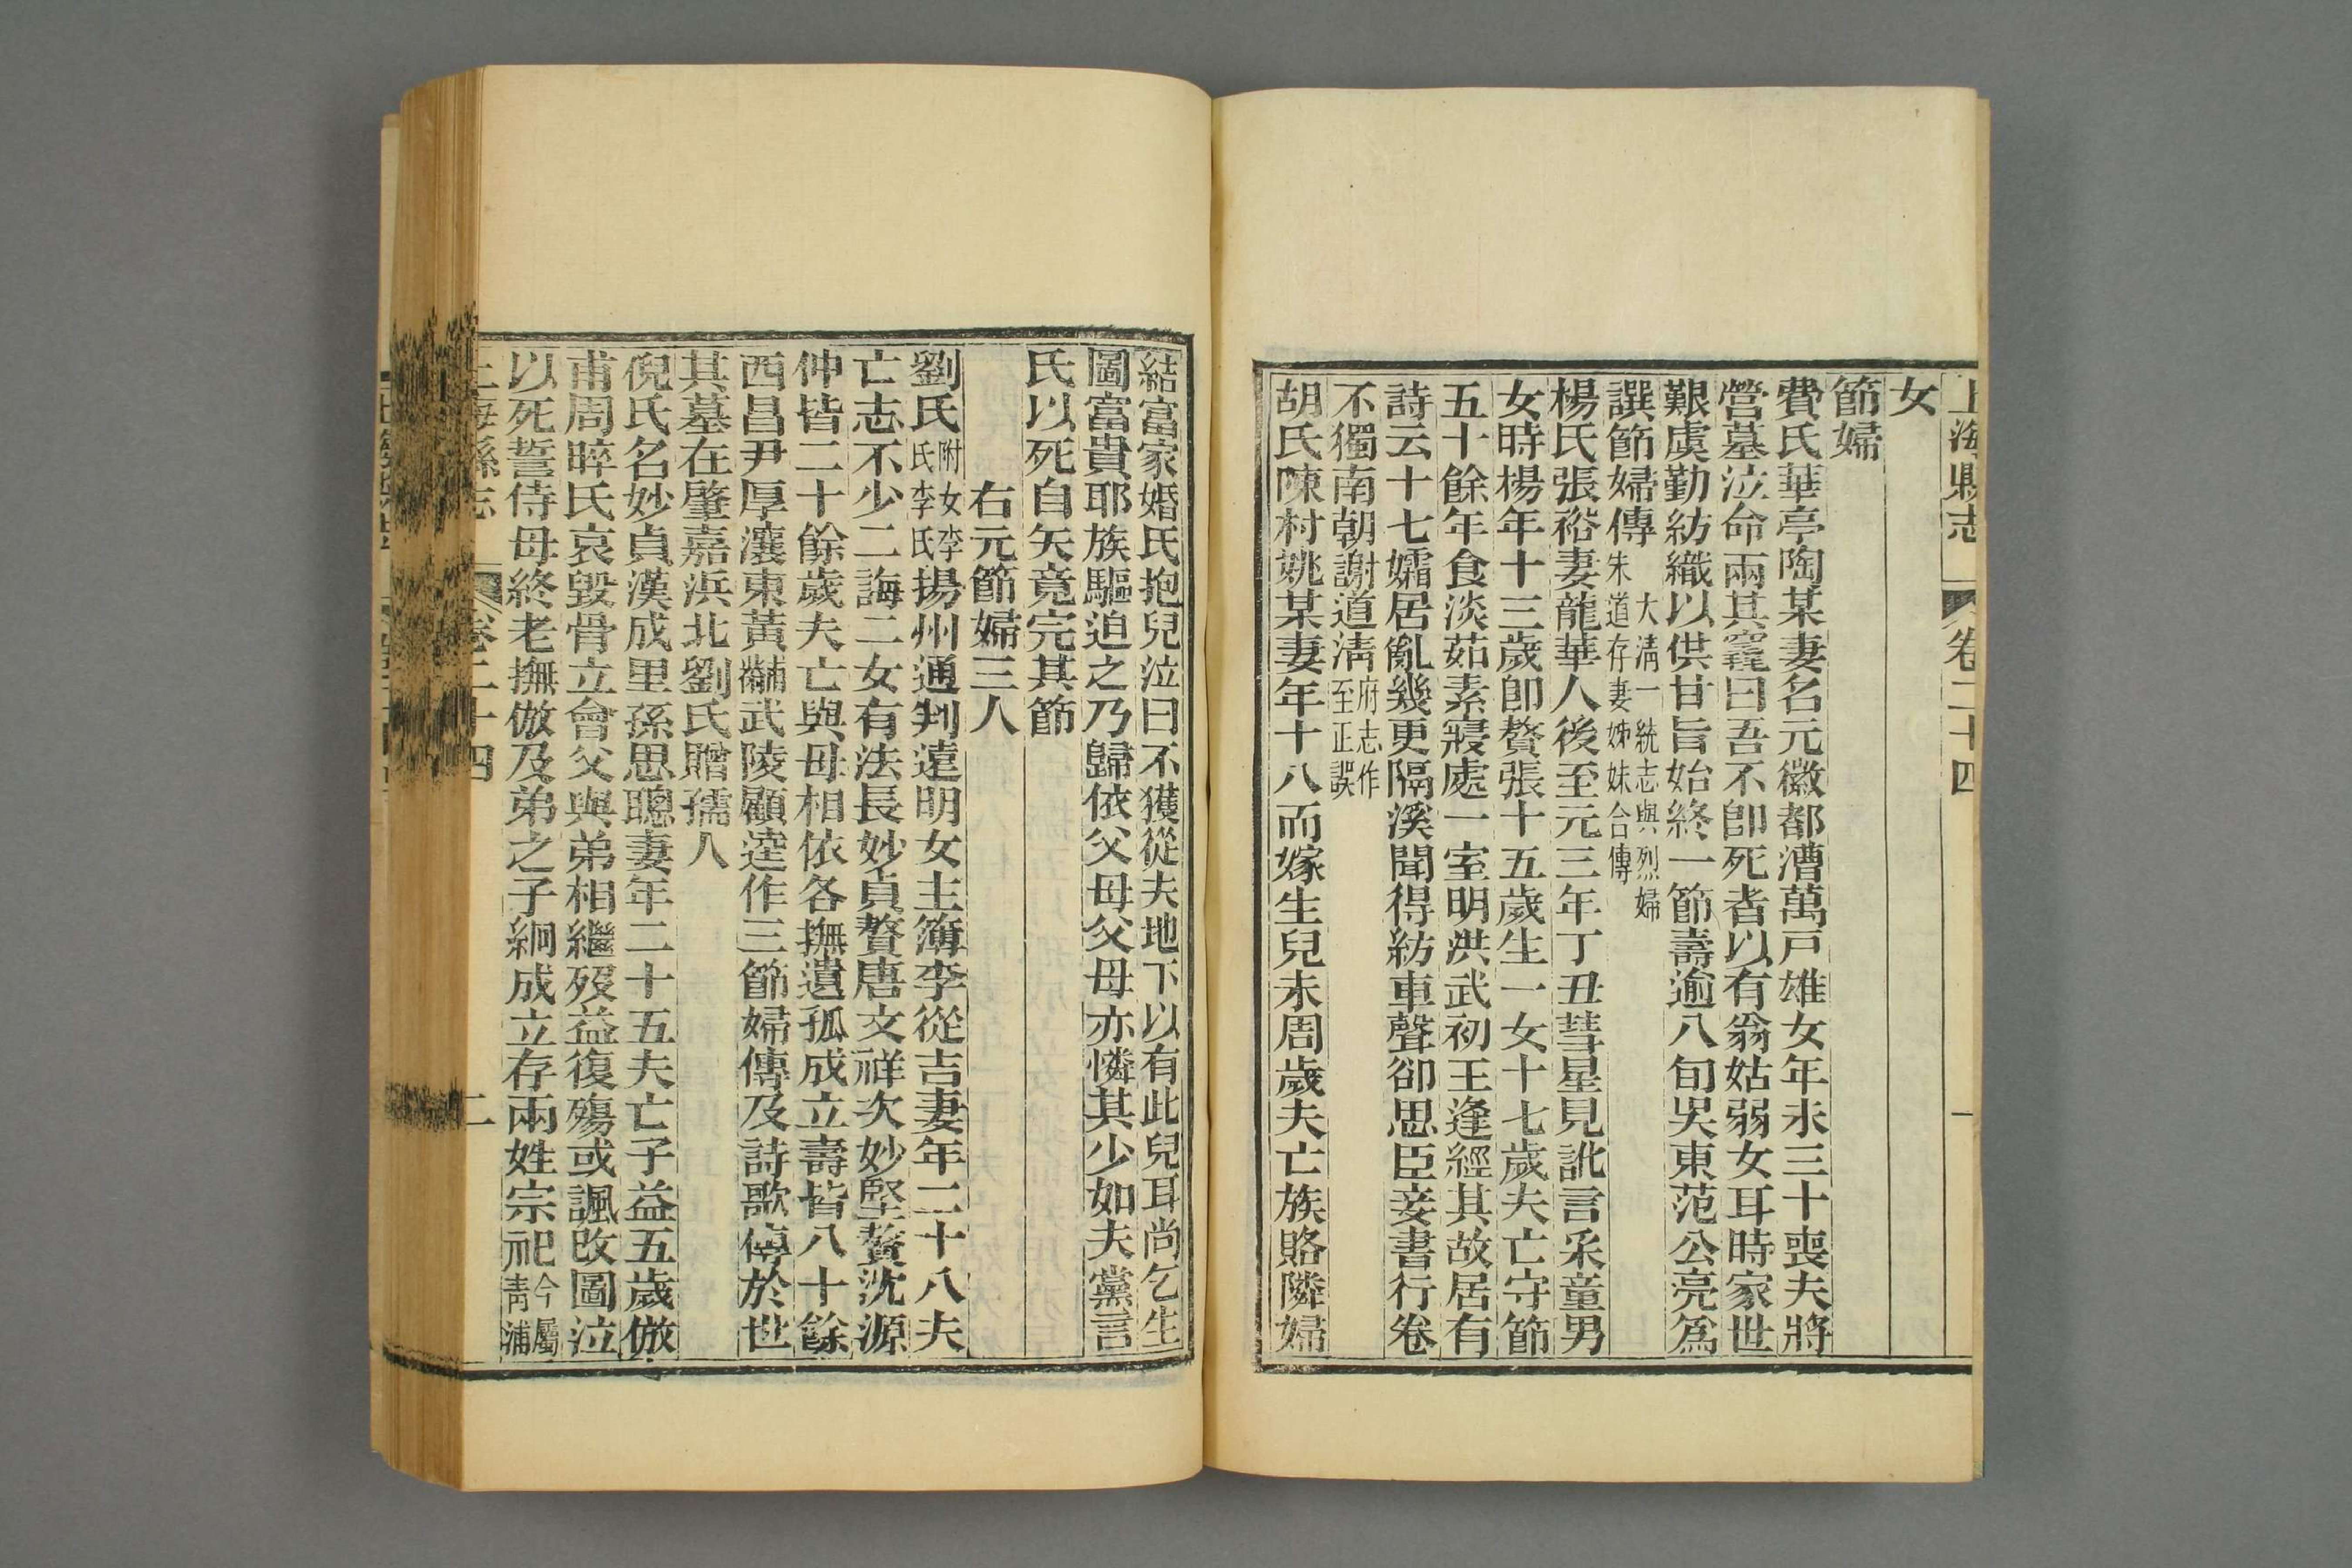 上海縣志
卷二十四
一
女
節婦
費氏華亭陶某妻名元徽都漕萬戸雄女年未三十喪夫將
營墓泣命兩其窀曰吾不卽死者以有翁姑弱女耳時家世
艱虞勤紡織以供甘旨始終一節壽逾八旬吳東范公亮爲
譔節婦傳
大淸一統志與烈婦
朱道存妻姊妹合傳
楊氏張裕妻龍華人後至元三年丁丑彗星見訛言采童男
女時楊年十三歲卽贅張十五歲生一女十七歲夫亡守節
五十餘年食淡茹素寢處一室明洪武初王逢經其故居有
詩云十七孀居亂幾更隔溪聞得紡車聲卻思臣妾書行卷
不獨南朝謝道淸
府志作
至正誤
胡氏陳村姚某妻年十八而嫁生兒未周歲夫亡族賂隣婦
結富家婚氏抱兒泣曰不獲從夫地下以有此兒耳尚乞生
圖富貴耶族驅迫之乃歸依父母父母亦憐其少如夫黨言
氏以死自矢竟完其節
右元節婦三人
劉氏
附女李
氏李氏
揚州通判遠明女主簿李從吉妻年二十八夫
亡志不少二誨二女有法長妙貞贅唐文祥次妙堅贅沈源
仲皆二十餘歲夫亡與母相依各撫遺孤成立壽皆八十餘
西昌尹厚瀼東黃黼武陵顧逵作三節婦傳及詩歌傳於世
其墓在肇嘉浜北劉氏贈孺人
倪氏名妙貞漢成里孫思聰妻年二十五夫亡子益五歲倣
甫周晬氏哀毀骨立會父與弟相繼歿益復殤或諷改圖泣
以死誓侍母終老撫倣及弟之子絅成立存兩姓宗祀
今屬
靑浦
上海縣志
卷二十四
二